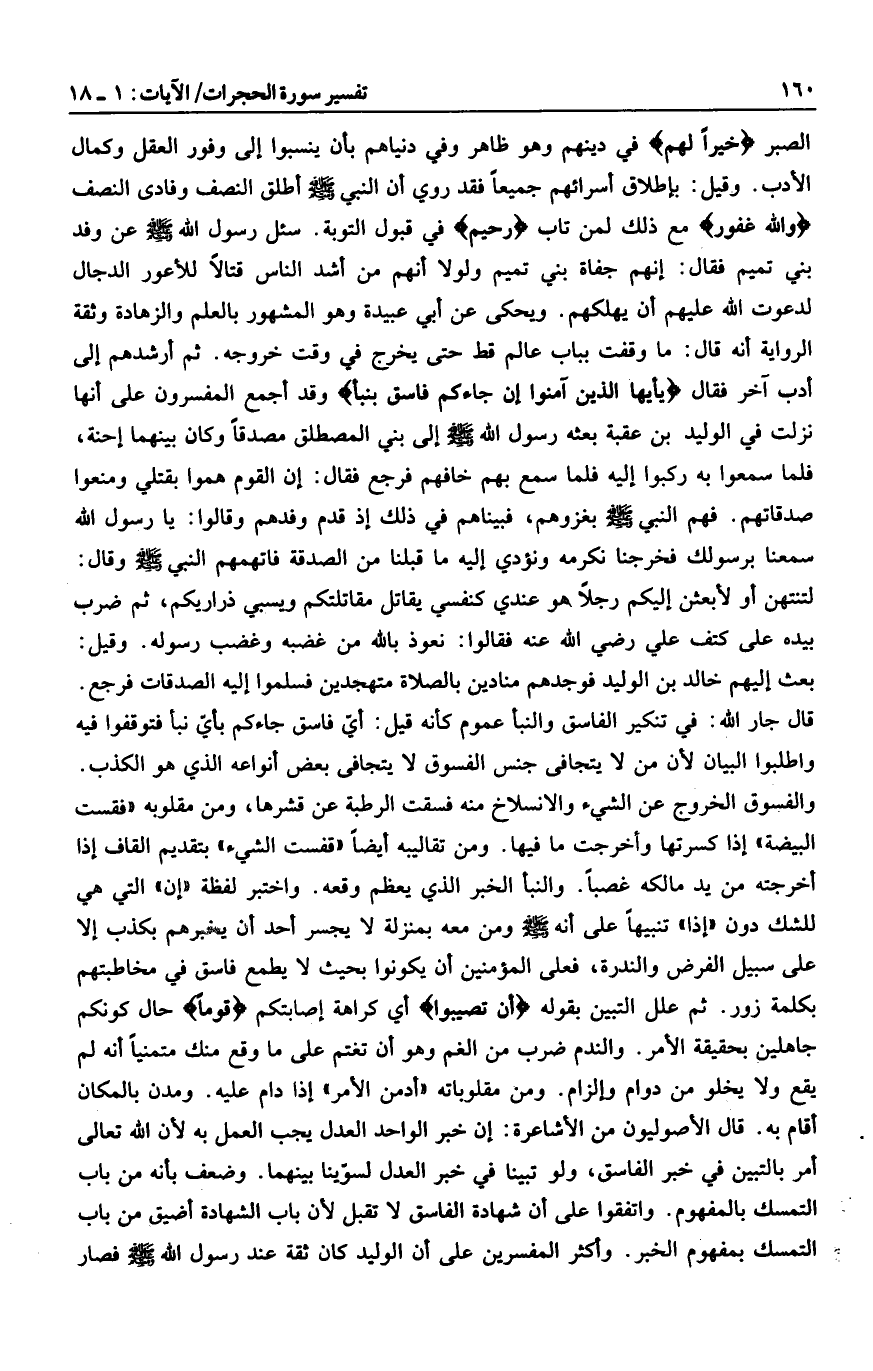 ١٦٠ تفسير سورة الحجرات/ الآيات: ١ ـ ١٨
الصبر ﴿خيراً لهم﴾ في دينهم وهو ظاهر وفي دنياهم بأن ينسبوا إلى وفور العقل وكمال
الأدب. وقيل: بإطلاق أسرائهم جميعاً فقد روي أن النبي ﷺ أطلق النصف وفادى النصف
﴿والله غفور﴾ مع ذلك لمن تاب ﴿رحيم﴾ في قبول التوبة. سئل رسول الله ﷺ عن وفد
بني تميم فقال: إنهم جفاة بني تميم ولولا أنهم من أشد الناس قتالاً للأعور الدجال
لدعوت الله عليهم أن يهلكهم. ويحكى عن أبي عبيدة وهو المشهور بالعلم والزهادة وثقة
الرواية أنه قال: ما وقفت بباب عالم قط حتى يخرج في وقت خروجه. ثم أرشدهم إلى
أدب آخر فقال ﴿يأيها الذين آمنوا إن جاءكم فاسق بنبأ﴾ وقد أجمع المفسرون على أنها
نزلت في الوليد بن عقبة بعثه رسول الله ﷺ إلى بني المصطلق مصدقاً وكان بينهما إحنة،
فلما سمعوا به ركبوا إليه فلما سمع بهم خافهم فرجع فقال: إن القوم هموا بقتلي ومنعوا
صدقاتهم. فهم النبي ﷺ بغزوهم، فبيناهم في ذلك إذ قدم وفدهم وقالوا: يا رسول الله
سمعنا برسولك فخرجنا نكرمه ونؤدي إليه ما قبلنا من الصدقة فاتهمهم النبي ﷺ وقال:
لتنتهن أو لأبعثن إليكم رجلاً هو عندي كنفسي يقاتل مقاتلتكم ويسبي ذراريكم، ثم ضرب
بيده على كتف علي رضي الله عنه فقالوا: نعوذ بالله من غضبه وغضب رسوله. وقيل:
بعث إليهم خالد بن الوليد فوجدهم منادين بالصلاة متهجدين فسلموا إليه الصدقات فرجع.
قال جار الله: في تنكير الفاسق والنبأ عموم كأنه قيل: أيّ فاسق جاءكم بأيّ نبأ فتوقفوا فيه
واطلبوا البيان لأن من لا يتجافى جنس الفسوق لا يتجافى بعض أنواعه الذي هو الكذب.
والفسوق الخروج عن الشيء والانسلاخ منه فسقت الرطبة عن قشرها، ومن مقلوبه «فقست
البيضة» إذا كسرتها وأخرجت ما فيها. ومن تقاليبه أيضاً «قفست الشيء» بتقديم القاف إذا
أخرجته من يد مالكه غصباً. والنبأ الخبر الذي يعظم وقعه. واختبر لفظة «إن» التي هي
للشك دون «إذا» تنبيهاً على أنه ﷺ ومن معه بمنزلة لا يجسر أحد أن يخبرهم بكذب إلا
على سبيل الفرض والندرة، فعلى المؤمنين أن يكونوا بحيث لا يطمع فاسق في مخاطبتهم
بكلمة زور. ثم علل التبين بقوله ﴿أن تصيبوا﴾ أي كراهة إصابتكم ﴿قوماً﴾ حال كونكم
جاهلين بحقيقة الأمر. والندم ضرب من الغم وهو أن تغتم على ما وقع منك متمنياً أنه لم
يقع ولا يخلو من دوام وإلزام. ومن مقلوباته «أدمن الأمر» إذا دام عليه. ومدن بالمكان
أقام به. قال الأصوليون من الأشاعرة: إن خبر الواحد العدل يجب العمل به لأن الله تعالى
أمر بالتبين في خبر الفاسق، ولو تبينا في خبر العدل لسوّينا بينهما. وضعف بأنه من باب
التمسك بالمفهوم. واتفقوا على أن شهادة الفاسق لا تقبل لأن باب الشهادة أضيق من باب
التمسك بمفهوم الخبر. وأكثر المفسرين على أن الوليد كان ثقة عند رسول الله ﷺ فصار